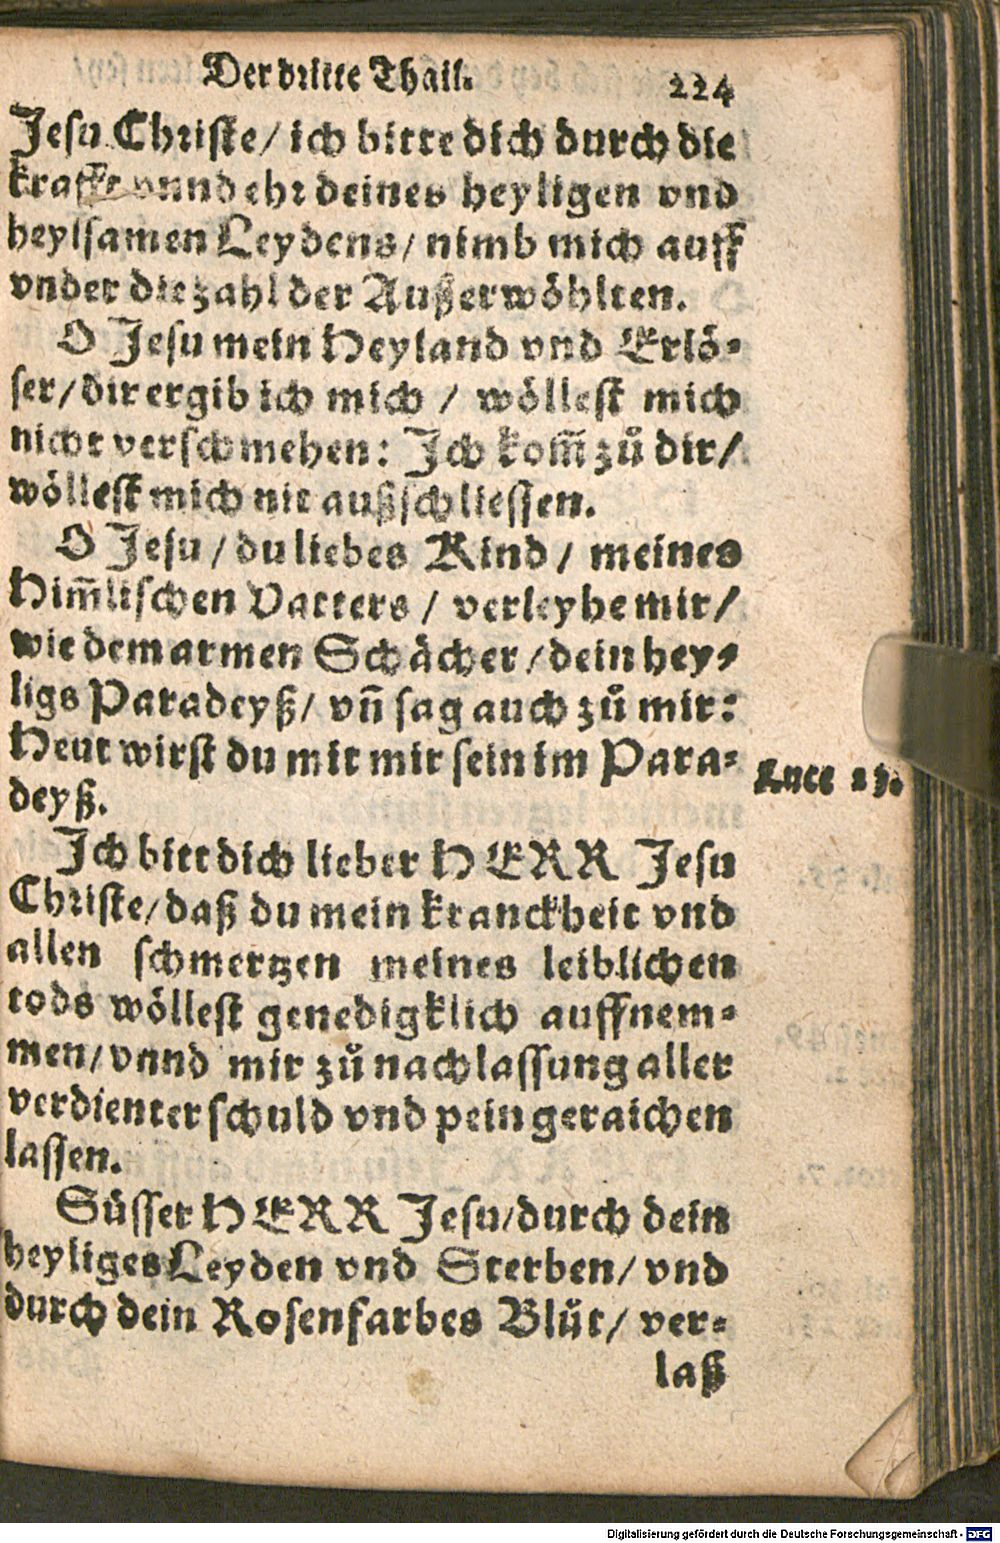 Der dritte Thail. 224
Jesu Christe/ ich bitte dich durch die
krafft vnnd ehr deines heyligen vnd
heylsamen Leydens/ nimb mich auff
vnder die zahl der Außerwöhlten.
O Jesu mein Heyland vnd Erlö-
ser/ dir ergib ich mich / wöllest mich
nicht verschmehen: Ich kom̃ zů dir/
wöllest mich nit außschliessen.
O Jesu / du liebes Kind / meines
Him̃lischen Vatters / verleyhe mir/
wie dem armen Schächer / dein hey-
ligs Paradeyß/ vn̄ sag auch zů mir:
Heut wirst du mit mir sein im Para-
deyß.
Luce 23.
Ich bitt dich lieber HERR Jesu
Christe/ daß du mein kranckheit vnd
allen schmertzen meines leiblichen
tods wöllest genedigklich auffnem-
men/ vnnd mir zů nachlassung aller
verdienter schuld vnd pein geraichen
lassen.
Süsser HERR Jesu/ durch dein
heyliges Leyden vnd Sterben/ vnd
durch dein Rosenfarbes Blůt/ ver-
laß
Digitalisierung gefördert durch die Deutsche Forschungsgemeinschaft - DFG